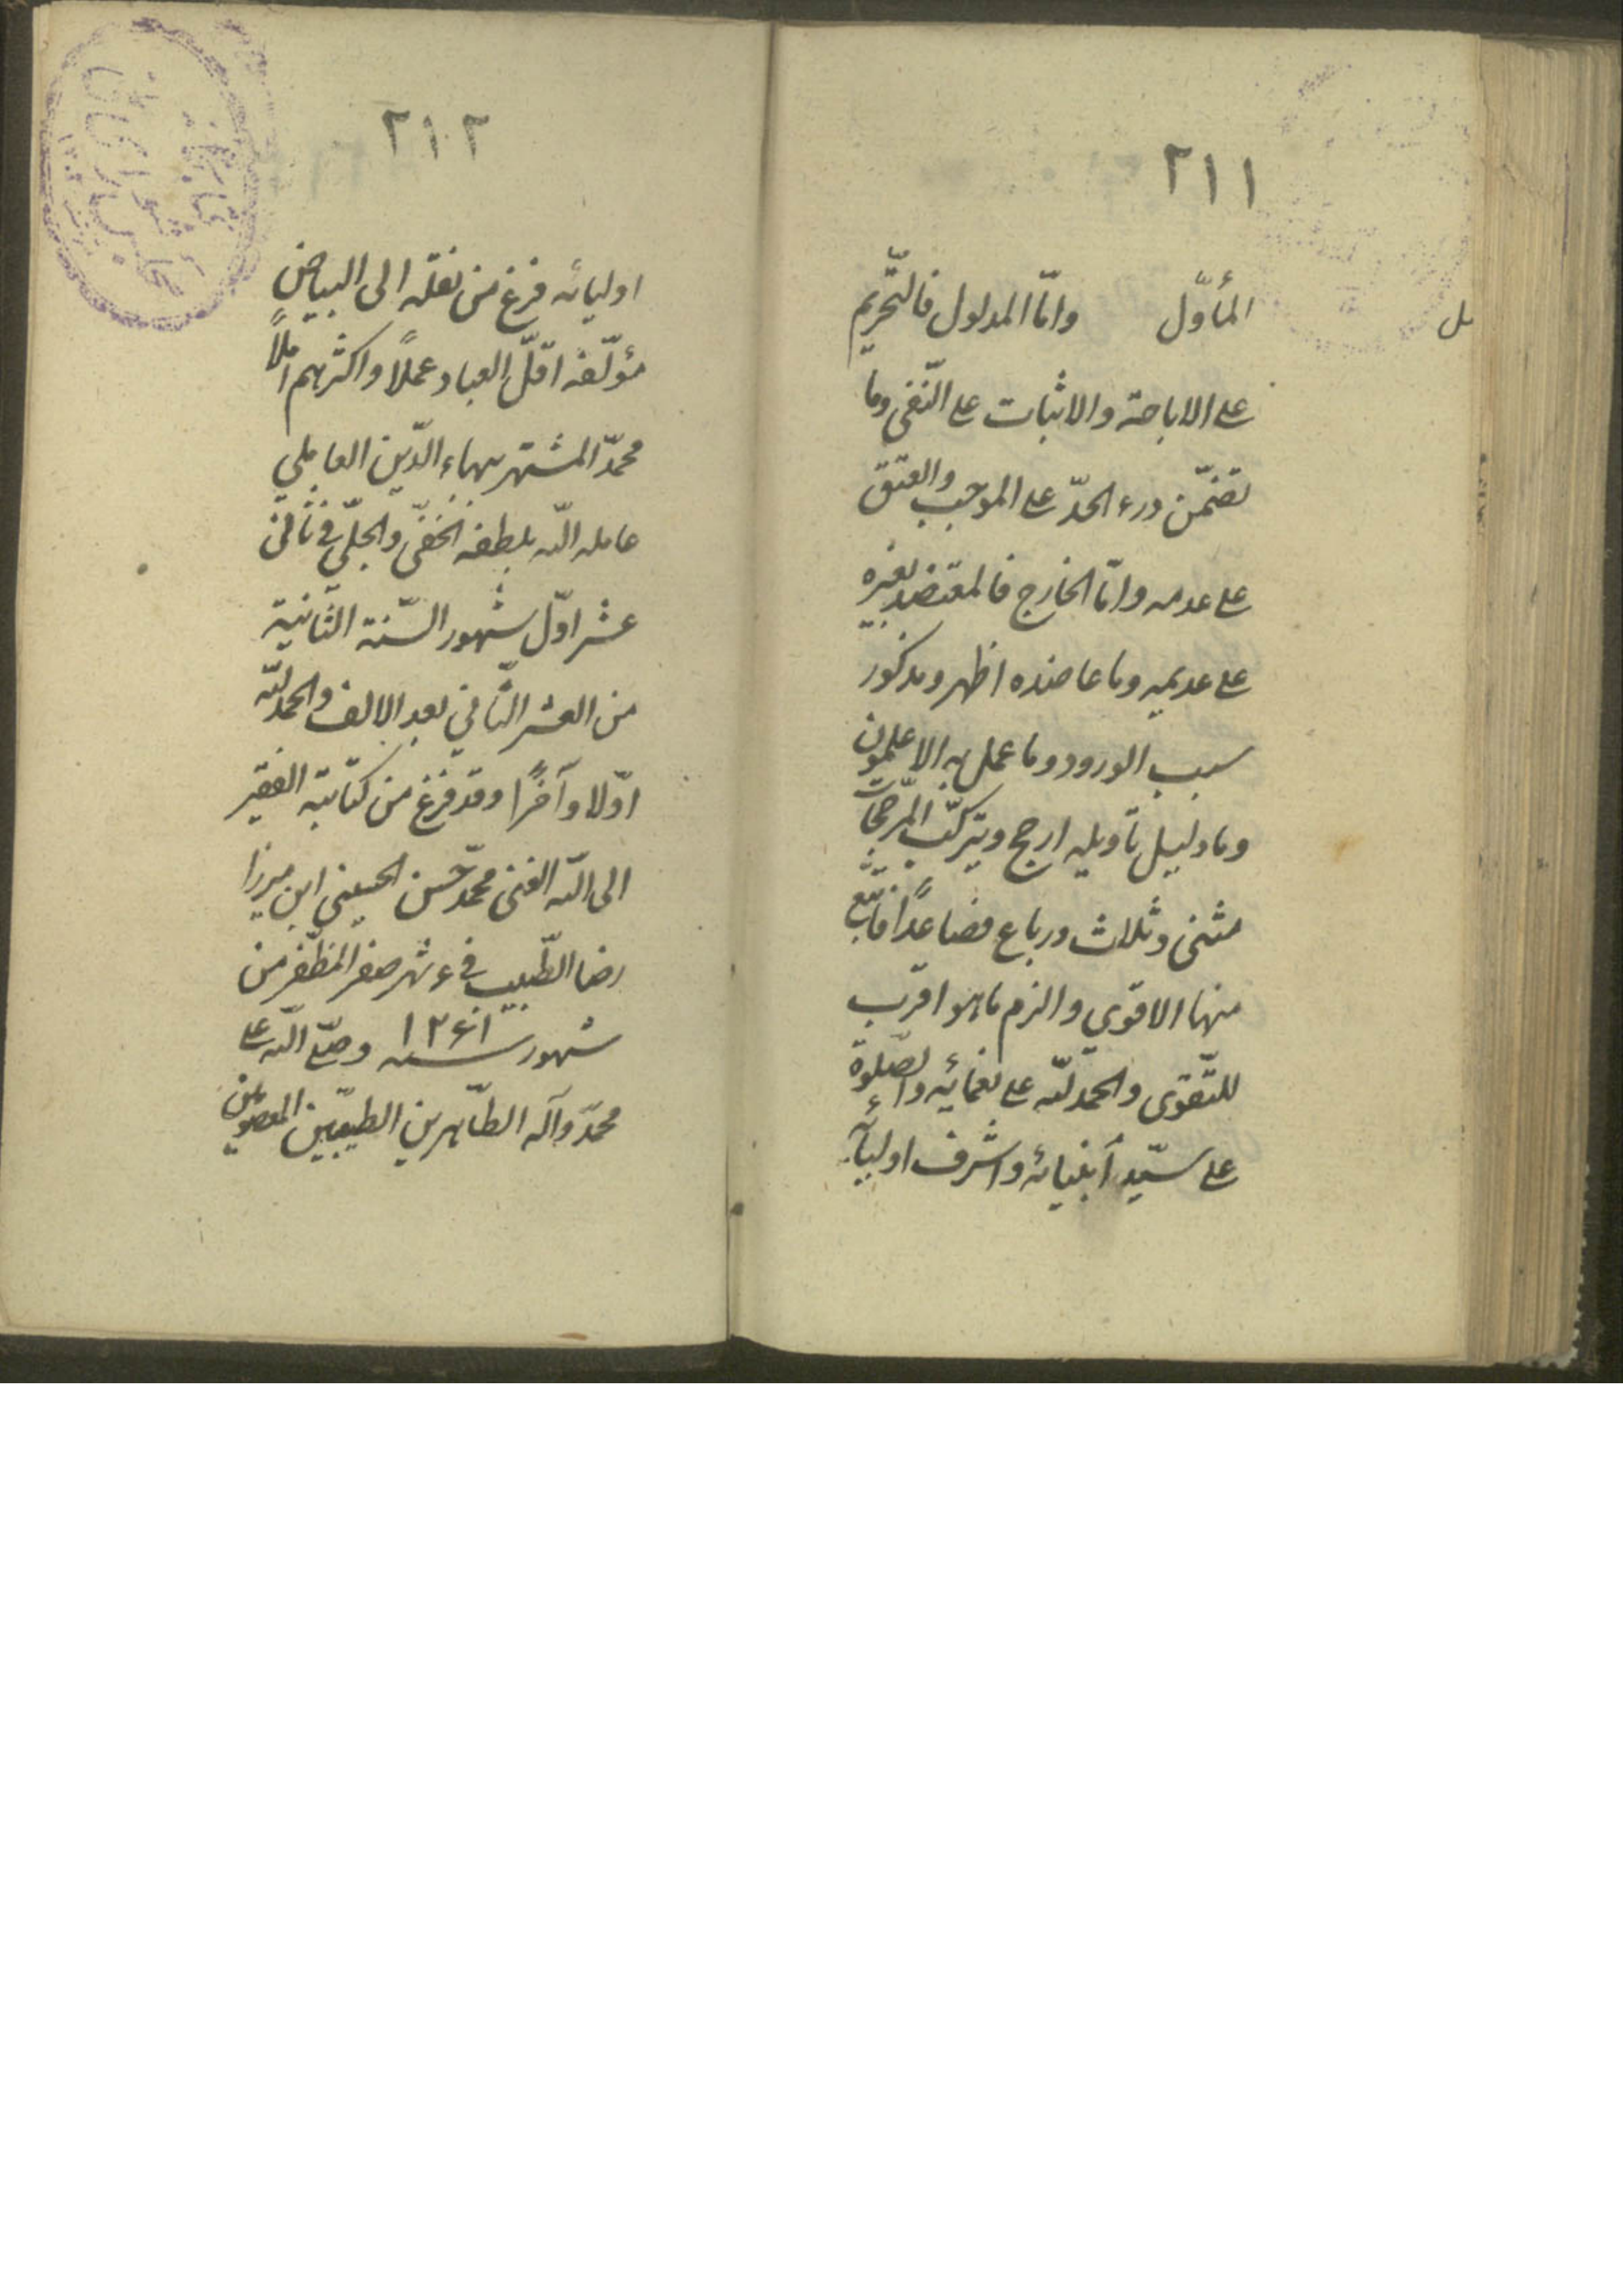 ٢١١
المأوّل وامّا المدلول فالتّحريم
على الاباحة والاثبات على النّفى وما
تضمّن درء الحدّ على الموجب والعتق
على عدمه وامّا الخارج فالمعتضد بغيره
على عديمه وما عاضده اظهر ومذكور
سبب الورود وما عمل به الاعلمون
وما دليل تأويله ارجح ويتركّب المرّجحات
مثنى وثلاث ورباع فصاعدًا فاتّبع
منها الاقوى والزم ما هو اقرب
للتّقوى والحمد للّه على نعمائه والصّلوة
على سيّد أنبيائه واشرف اوليآء
٢١٢
اوليائه فرغ من نقله الى البياض
مؤلّفه اقلّ العباد عملاً واكثرهم املاً
محمّد المشتهر ببهاء الدّين العاملي
عامله اللّه بلطفه الخفّى والجلّى فى ثانى
عشر اوّل شهور السّنة الثّانية
من العشر الثّاني بعد الالف والحمد للّه
اوّلا وآخرًا وقد فرغ من كتابته الفقير
الى اللّه الغنى محمّد حسن الحسيني ابن ميرزا
رضا الطّبيب فى ٤ شهر صفر المظّفر من
شهور سنه ١٢٤١ وصلّى اللّه على
محمّد وآله الطّاهرين الطيبّين المعصومين